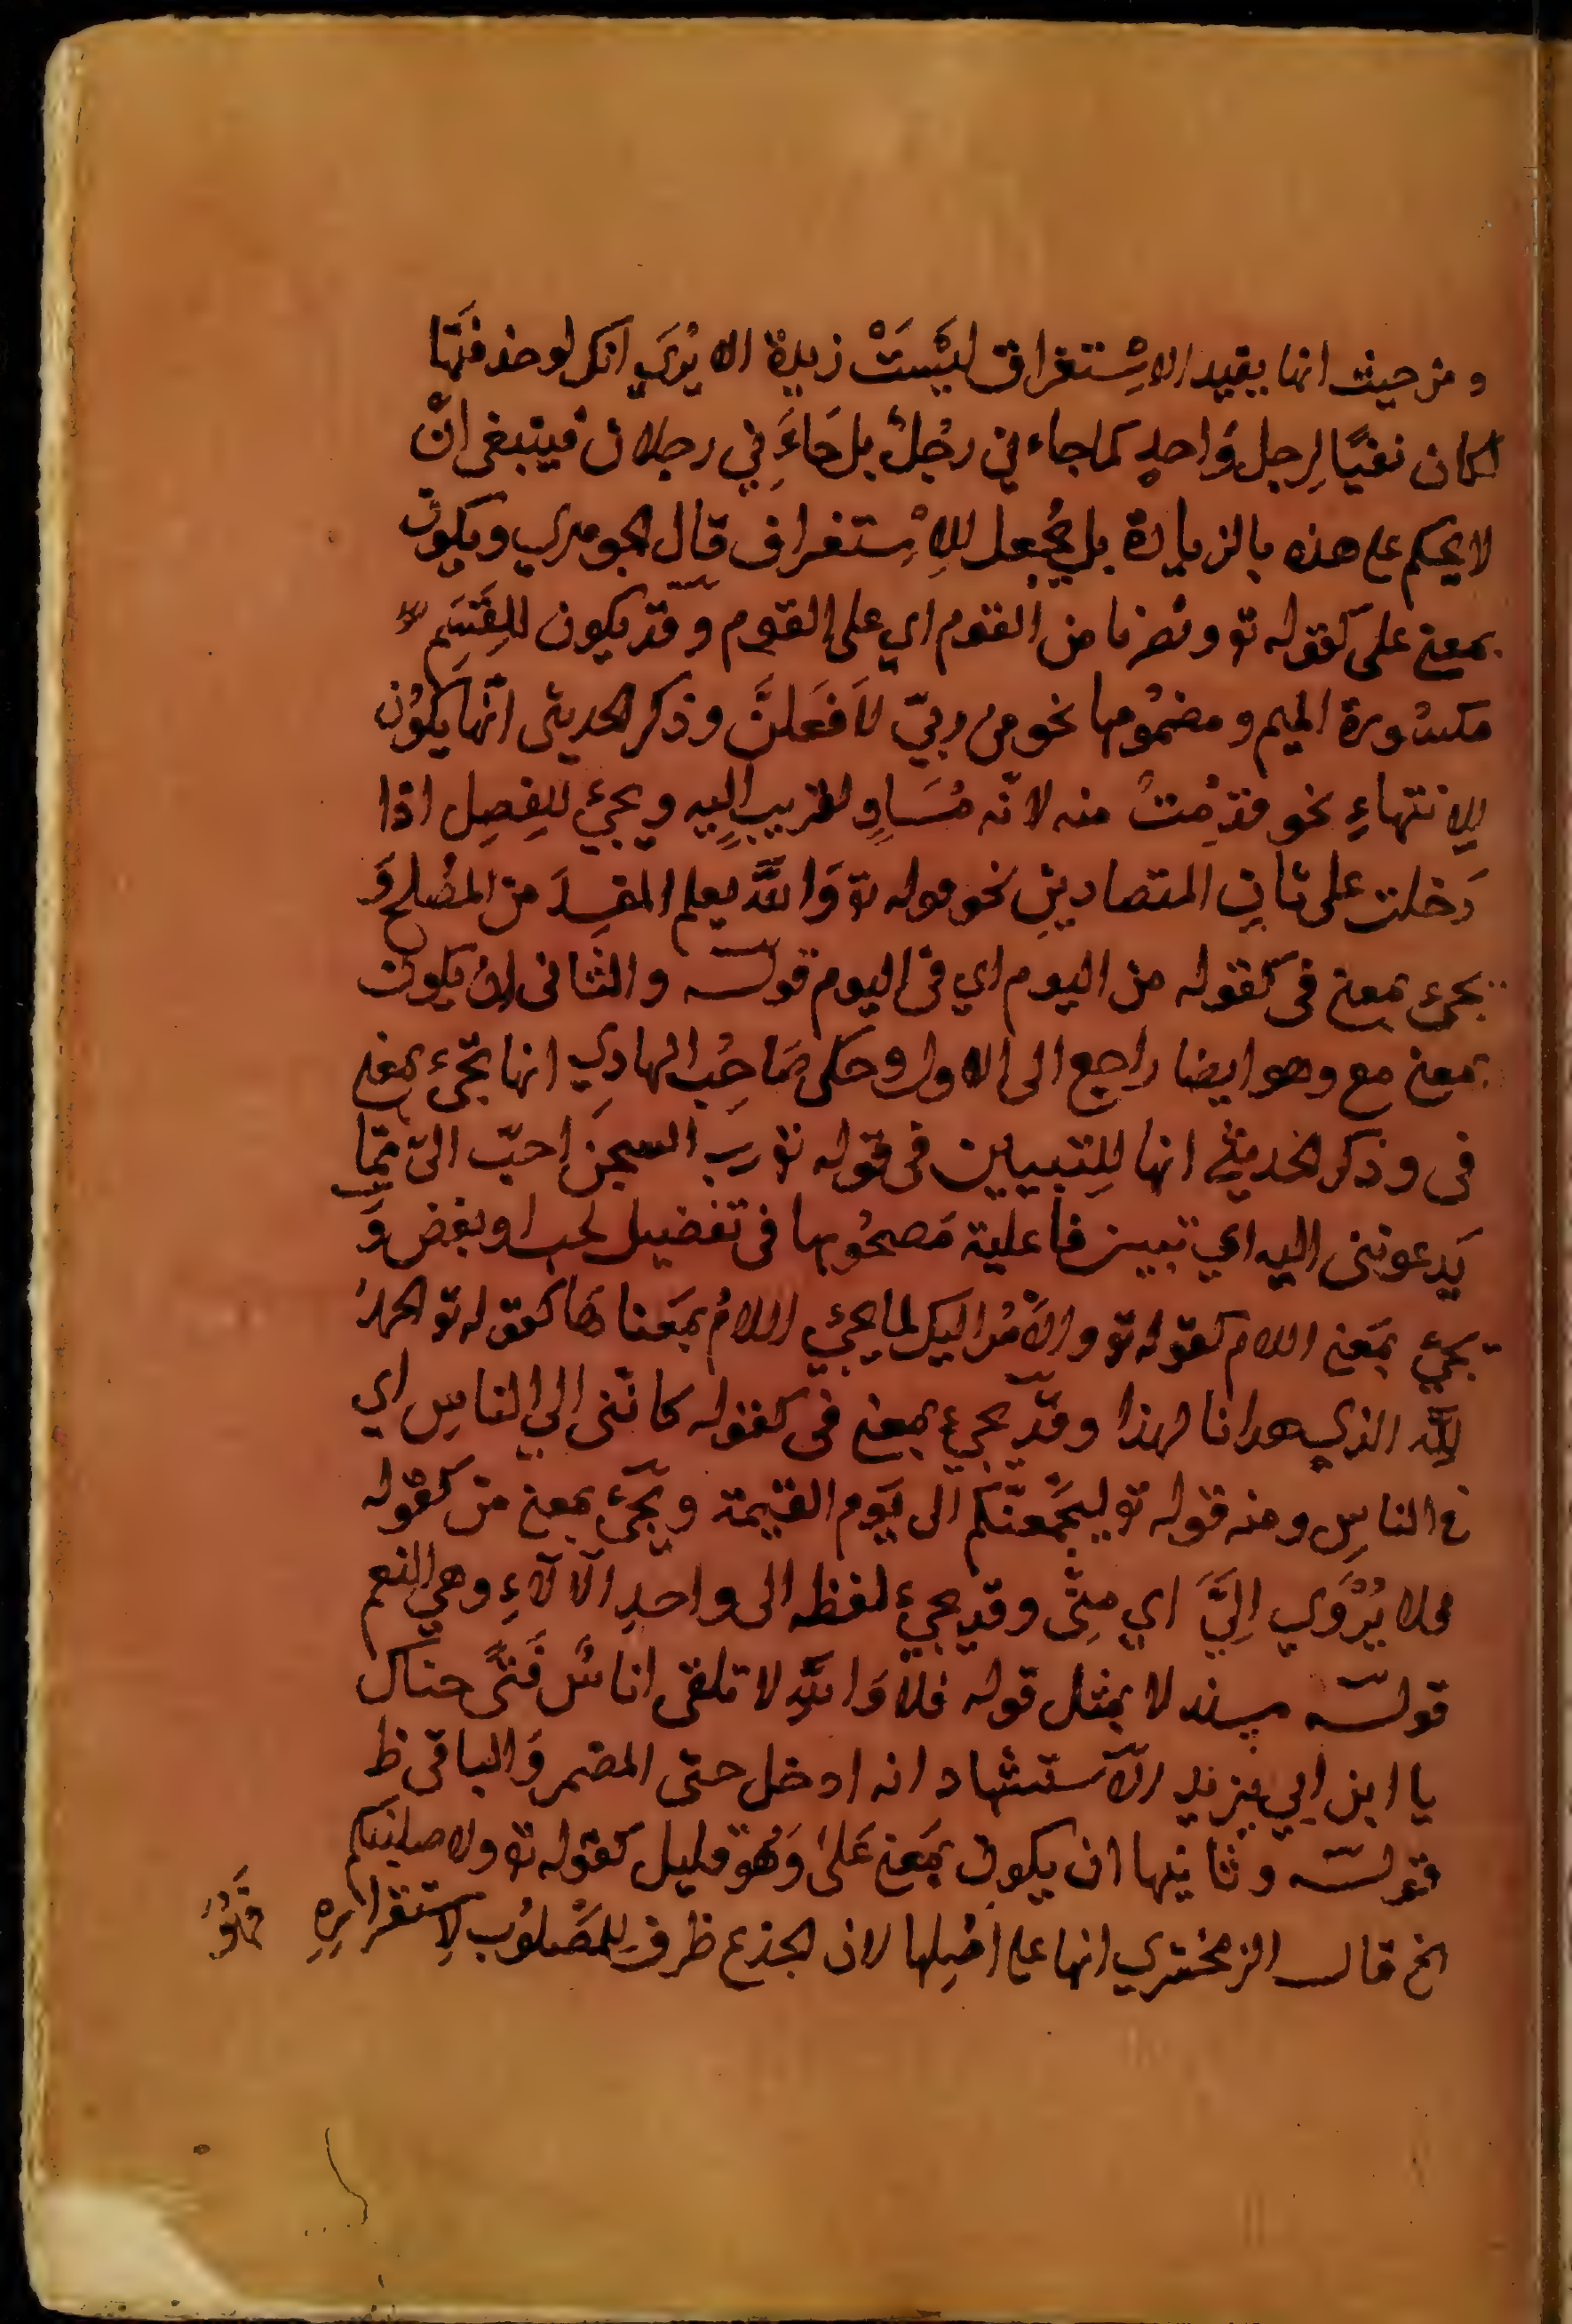 ومن حيث انها يفيد الاِسْتغراق ليْسَتْ زيدة الا يُرَى انك لو حذفتَها
لكان نفيًا لِرجل وَاحدٍ كما جاء ني رجُلٌ بل جَاءَني رجلان فينبغى انْ
لا يحكم على هذه بالزيادة بل يُجْعل للاِسْتغراق قال الجوهري ويكون
بمعنى على كقوله تع ونصرنا من القوم اي على القوم وقد يكون للقَسَم
مكسُورة الميم ومضمُومها نحو من ربيّ لاَفعَلنَّ وذكر الحديثى انّها يكُون
للانتهاءِ نحو قدِمْتُ منه لانّه مُسَاوٍ لقريب اليه ويجئ للفصِل اذا
دَخلت على ثانِ المتضادين نحو قوله تع وَاللّه يعلم المفسِدَ من المصْلح وَ
يجئ بمعنى فى كقوله من اليوم اي فى اليوم قولـه والثانى ان يكون
بمعنى مع وهو ايضا راجع الى الاول وحكى صَاحِب الهادِي انها تجئ بمعنى
فى وذكر الحديثى انها للِتبيين فى قوله تع رب السجن احبّ الىّ ممّا
يَدعوننى اليه اي تبيين فاعلية مَصحُوبها فى تفضيل لحب او بغض وَ
تجئ بمَعنى اللام كقوله تع والاَمْرُ اليك كما يجئ اللامُ بمَعناهَا كقوله تع الحمدُ
للّه الذي هدانا لهذا وقدّ يجئ بمعنى فى كقوله كانّنى الى الناسِ اي
في الناسِ ومنه قوله تع ليجمَعنّكم الى يَوم القيمة ويجَئ بمعنى من كقوله
فلا يُرْوَي اِلَيَّ اي مِنّى وقد يجئ لفظه الى واحدِ الآلآءِ وهي النعم
قولـه مبتدلا بمثل قوله فلا وَاللّه لا تلفى اناسٌ فَتىً حتاك
يا ابن ابي يزيد الاستشهاد انه ادخل حتى المضمر وَالباقى ظ
قولـه وثانيها ان يكون بمَعنى عَلى وَهُو قليل كقوله تع ولاصلبنكم
الخ قال الزمخشري انها على اصْلها لان الجذع ظرف لِلمَصْلوُب لاِستقرارِهِ